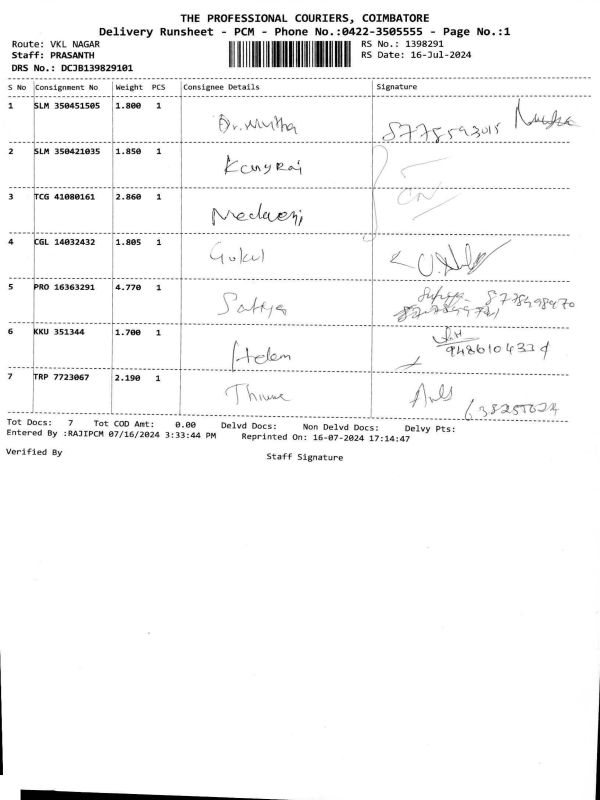 THE PROFESSIONAL COURIERS, COIMBATORE
Delivery Runsheet - PCM - Phone No.:0422-3505555 - Page No.:1
Route: VKL NAGAR RS No.: 1398291
Staff: PRASANTH RS Date: 16-Jul-2024
DRS No.: DCJB139829101
S No Consignment No Weight PCS Consignee Details Signature
1 SLM 350451505 1.800 1 Dr.
8778593015
2 SLM 350421035 1.850 1 Kangraj
3 TCG 41080161 2.860 1
4 CGL 14032432 1.805 1 Gokul
5 PRO 16363291 4.770 1 Sathya 8778498470
6 KKU 351344 1.700 1 Helen
9486104334
7 TRP 7723067 2.190 1
Tot Docs: 7 Tot COD Amt: 0.00 Delvd Docs: Non Delvd Docs: Delvy Pts:
Entered By :RAJIPCM 07/16/2024 3:33:44 PM Reprinted On: 16-07-2024 17:14:47
Verified By Staff Signature